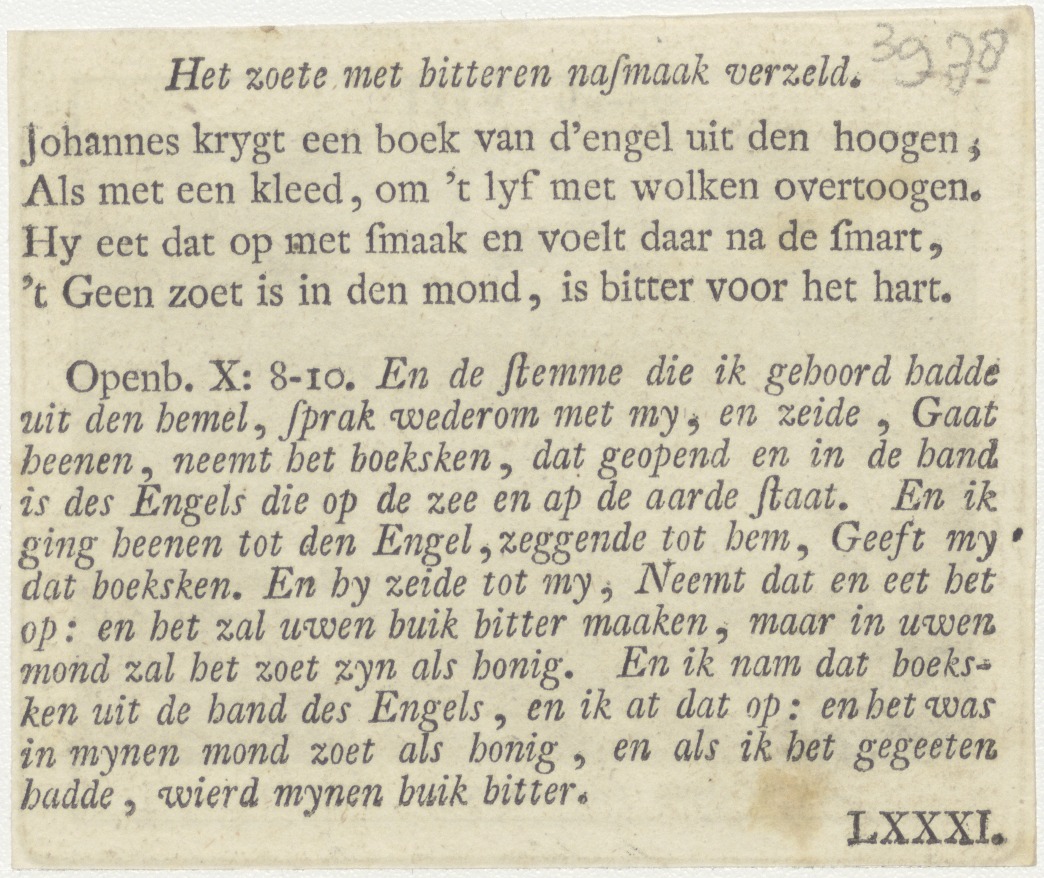 3978
Het zoete met bitteren naſmaak verzeld.
Johannes krygt een boek van d'engel uit den hoogen,
Als met een kleed, om 't lyf met wolken overtoogen.
Hy eet dat op met ſmaak en voelt daar na de ſmart,
't Geen zoet is in den mond, is bitter voor het hart.
Openb. X: 8-10. En de ſtemme die ik gehoord hadde
uit den hemel, ſprak wederom met my, en zeide, Gaat
heenen, neemt het boeksken, dat geopend en in de hand
is des Engels die op de zee en ap de aarde ſtaat. En ik
ging heenen tot den Engel, zeggende tot hem, Geeft my
dat boeksken. En hy zeide tot my, Neemt dat en eet het
op: en het zal uwen buik bitter maaken, maar in uwen
mond zal het zoet zyn als honig. En ik nam dat boeks-
ken uit de hand des Engels, en ik at dat op: en het was
in mynen mond zoet als honig, en als ik het gegeeten
hadde, wierd mynen buik bitter.
LXXXI.